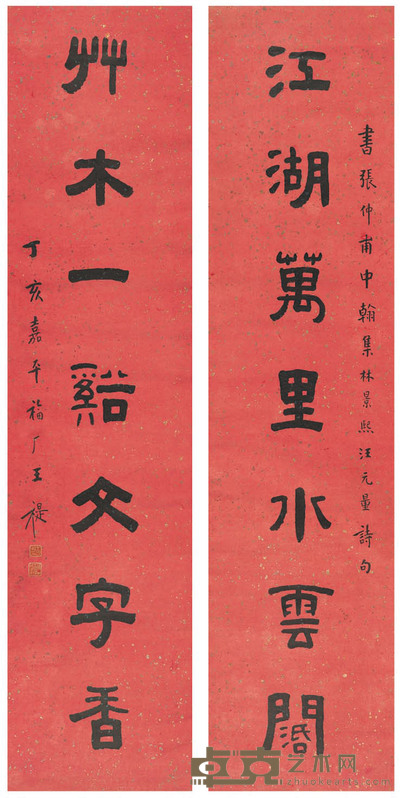 書張仲甫中翰集林景熙汪元量詩句
江湖萬里水雲闊
艸木一谿文字香
丁亥嘉平福厂王禔
艺术网